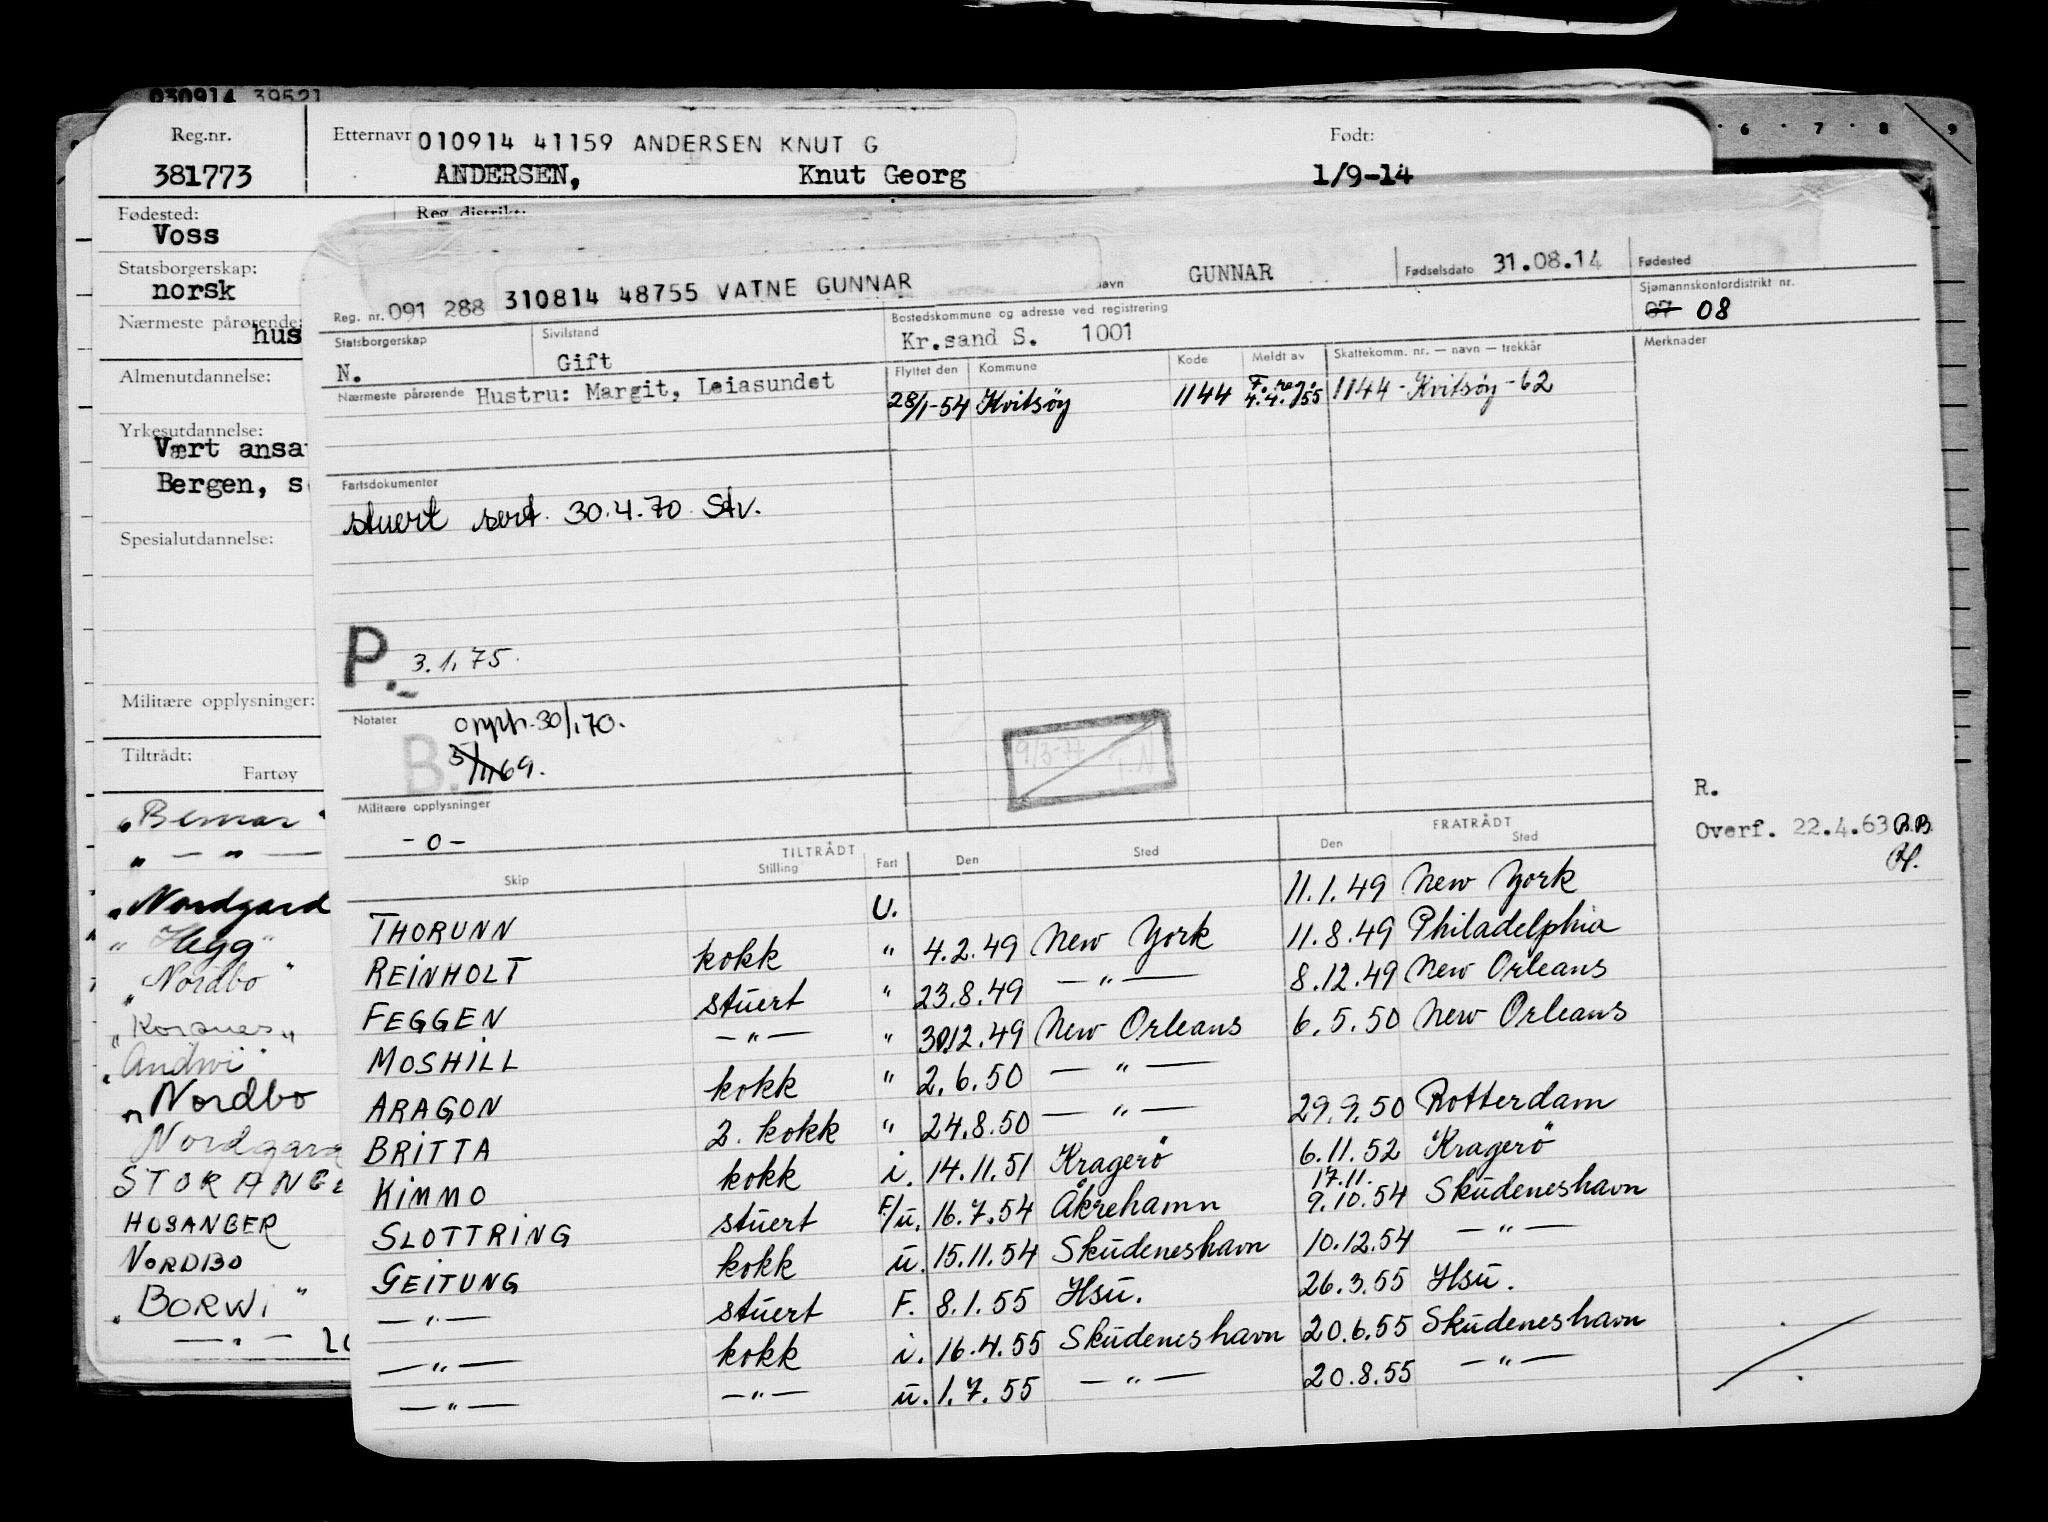 030914 39521
Reg.nr. Etternavn 010914 41159 ANDERSEN KNUT G Født:
381773 ANDERSEN, Knut Georg 1/9-14
Fødested: Reg. distrikt:
Voss
Statsborgerskap:
norsk
Nærmeste pårørende:
hus
Almenutdannelse:
Yrkesutdannelse:
Vært ansa
Bergen, s
Spesialutdannelse:
Militære opplysninger:
Tiltrådt:
Fartøy
"Bemar"
" — " —
"Nordgard
"Hegg"
"Nordbo"
"Korsnes"
"Andwi"
"Nordbo
Nordgard
STORANGE
HOSANGER
NORDBO
"BORWI"
— " —
6 7 8 9
Reg. nr. 091 288 310814 48755 VATNE GUNNAR navn GUNNAR Fødselsdato 31.08.14 Fødested
Statsborgerskap Sivilstand Bostedskommune og adresse ved registrering Sjømannskontordistrikt nr.
N. Gift Kr.sand S. 1001 07 08
Nærmeste pårørende Hustru: Margit, Leiasundet
Flyttet den Kommune Kode Meldt av Skattekomm. nr. — navn — trekkår Merknader
28/1-54 Kvitsøy 1144 F. reg. 4.4./55 1144 - Kvitsøy - 62
Fartsdokumenter
stuert sert. 30.4.70 Stv.
P. 3.1.75.
Notater opph. 30/1 70.
B. 5/11 69.
9/3-77 T.N
Militære opplysninger
- 0 -
R.
Overf. 22.4.63 B.B.
TILTRÅDT FRATRÅDT
Skip Stilling Fart Den Sted Den Sted
THORUNN U. 11.1.49 New York
REINHOLT kokk " 4.2.49 New York 11.8.49 Philadelphia
FEGGEN stuert " 23.8.49 — " — 8.12.49 New Orleans
MOSHILL — " — " 30.12.49 New Orleans 6.5.50 New Orleans
ARAGON kokk " 2.6.50 — " —
BRITTA 2. kokk " 24.8.50 — " — 29.9.50 Rotterdam
KIMMO kokk i. 14.11.51 Kragerö 6.11.52 Kragerö
17.11.
SLOTTRING stuert F./u. 16.7.54 Åkrehamn 9.10.54 Skudeneshavn
GEITUNG kokk u. 15.11.54 Skudeneshavn 10.12.54 — " —
— " — stuert F. 8.1.55 Hsu. 26.3.55 Hsu.
— " — kokk i. 16.4.55 Skudeneshavn 20.6.55 Skudeneshavn
— " — — " — u. 1.7.55 — " — 20.8.55 — " —